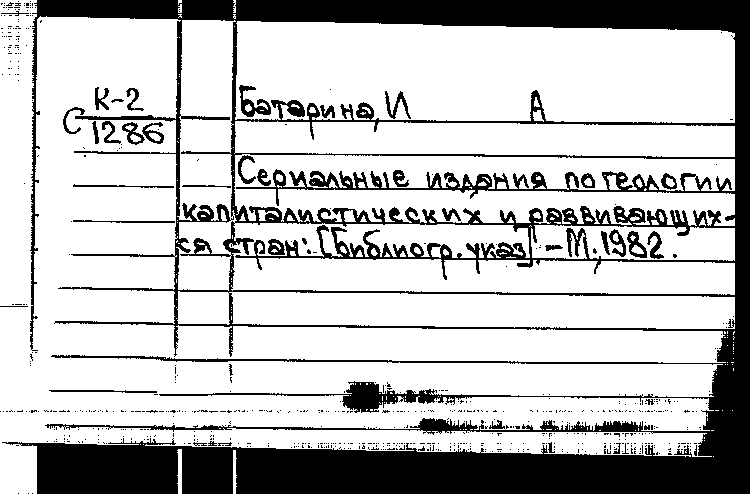 С К-2
1286
Батарина, И А
Сериальные издания по геологии
капиталистических и развивающих-
ся стран: [Библиогр. указ]. - М., 1982.